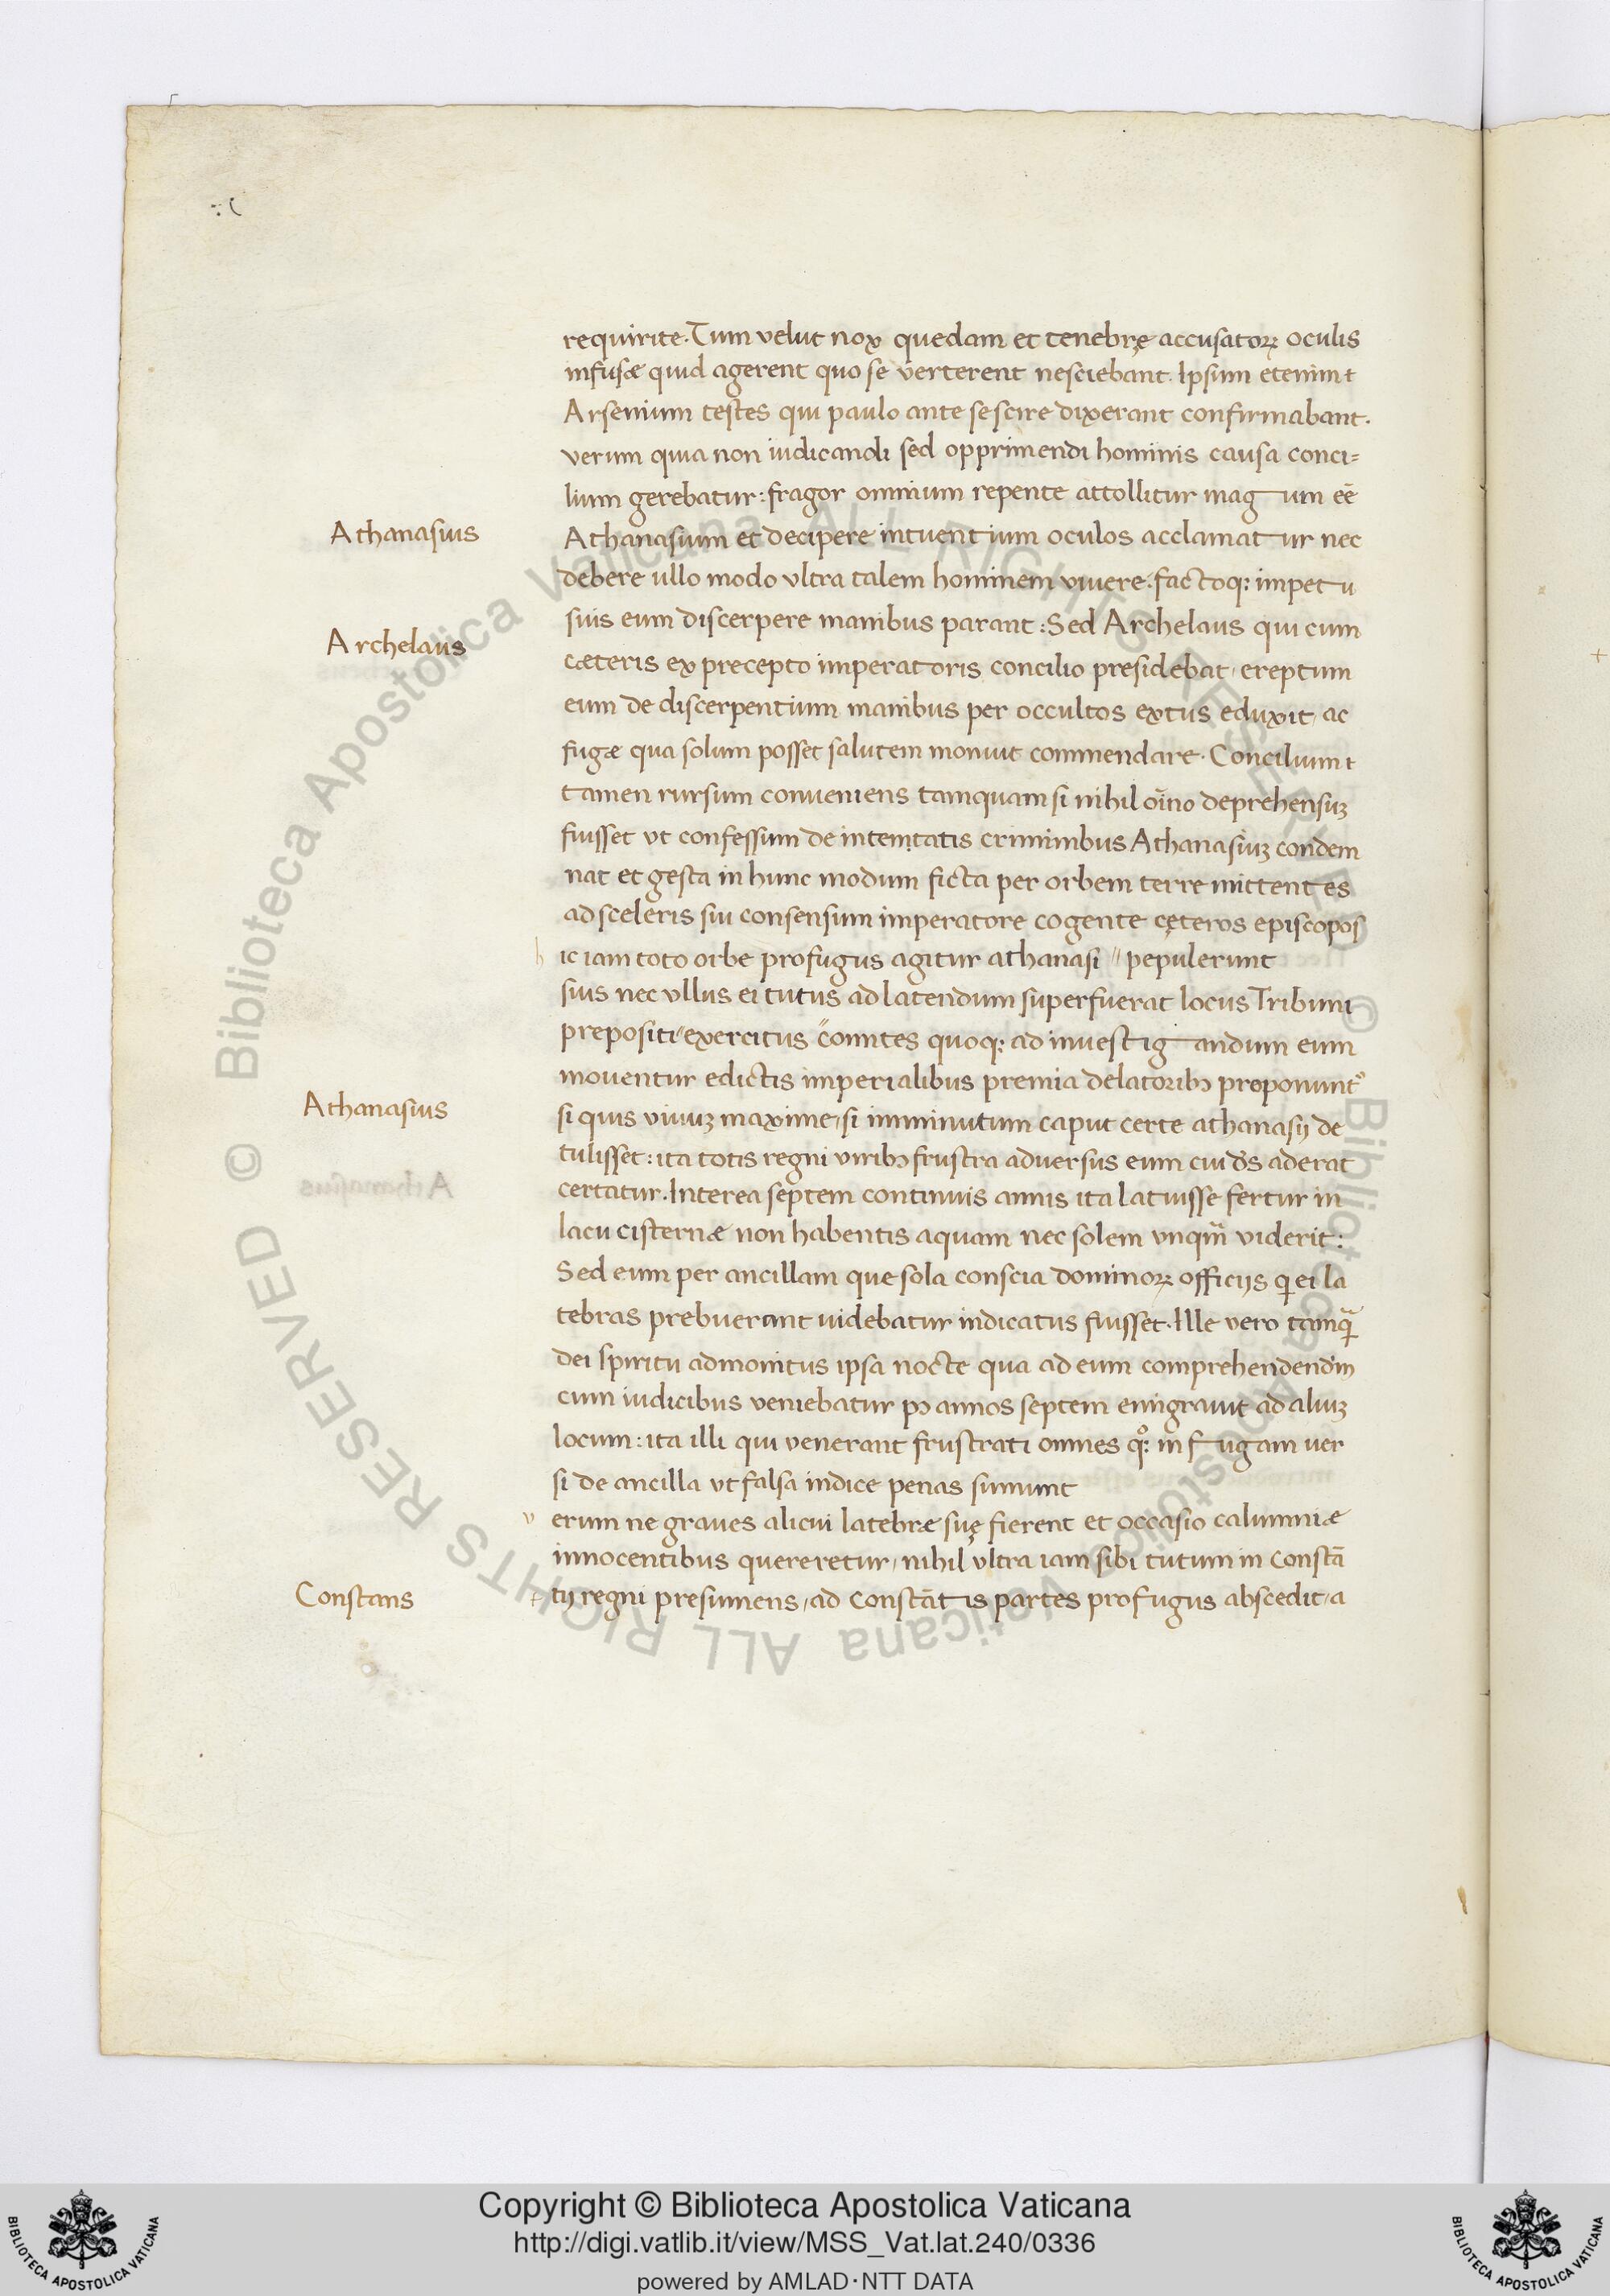 requirite. Tum velut nox quedam et tenebrę accusatoꝝ oculis
infusæ quid agerent quo se verterent nesciebant. Ipsum etenim t
Arsenium testes qui paulo ante se scire dixerant confirmabant.
verum quia non iudicandi sed opprimendi hominis causa conci=
lium gerebatur: fragor omnium repente attollitur mag um eē
Athanasius
Athanasium et decipere intuentium oculos acclamatur nec
debere ullo modo vltra talem hominem vivere. factoq; impetu
suis eum discerpere manibus parant: Sed Archelaus qui cum
Archelaus
cæteris ex precepto imperatoris concilio presidebat, ereptum
eum de discerpentium manibus per occultos extus eduxit, ac
fugæ qua solum posset salutem monuit commendare. Concilium t
tamen rursum conveniens tamquam si nihil oīno deprehensuꝫ
fuisset vt confessum de intemtatis criminibus Athanasiuꝫ condem
nat et gesta in hunc modum ficta per orbem terre mittentes
ad sceleris sui consensum imperatore cogente cęteros episcopos
h ic iam toto orbe profugus agitur athanasi // pepulerunt
sius nec vllus ei tutus ad latendum superfuerat locus Tribuni
prepositi, exercitus comites quoq; ad investigandum eum
moventur edictis imperialibus premia delatoribꝫ proponunt᷒
Athanasius
si quis vivuꝫ maxime, si imminutum caput certe athanasij de
tulisset: ita totis regni viribꝫ frustra adversus eum cui ds̄ aderat
certatur. Interea septem continuis annis ita latuisse fertur in
lacu cisternæ non habentis aquam nec solem vnqm̄ viderit:
Sed eum per ancillam que sola conscia dominoꝝ officijs qi ei la
tebras prebuerant uidebatur indicatus fuisset. Ille vero tamqi̅
dei spiritu admonitus ipsa nocte qua ad eum comprehendendm̄
cum iudicibus veniebatur pꝰ annos septem emigravit ad aliuꝫ
locum: ita illi qui venerant frustrati omnes qo; in fugam ver
si de ancilla vt falsa indice penas sumunt
v erum ne graues alicui latebræ suę fierent et occasio calumniæ
innocentibus quereretur, nihil vltra iam sibi tutum in constā
Constans
tij regni presumens, ad constātis partes profugus abscedit, a
Copyright © Biblioteca Apostolica Vaticana
http://digi.vatlib.it/view/MSS_Vat.lat.240/0336
powered by AMLAD·NTT DATA
BIBLIOTECA APOSTOLICA VATICANA
BIBLIOTECA APOSTOLICA VATICANA
© Biblioteca Apostolica Vaticana ALL RIGHTS RESERVED
© Biblioteca Apostolica Vaticana ALL RIGHTS RESERVED